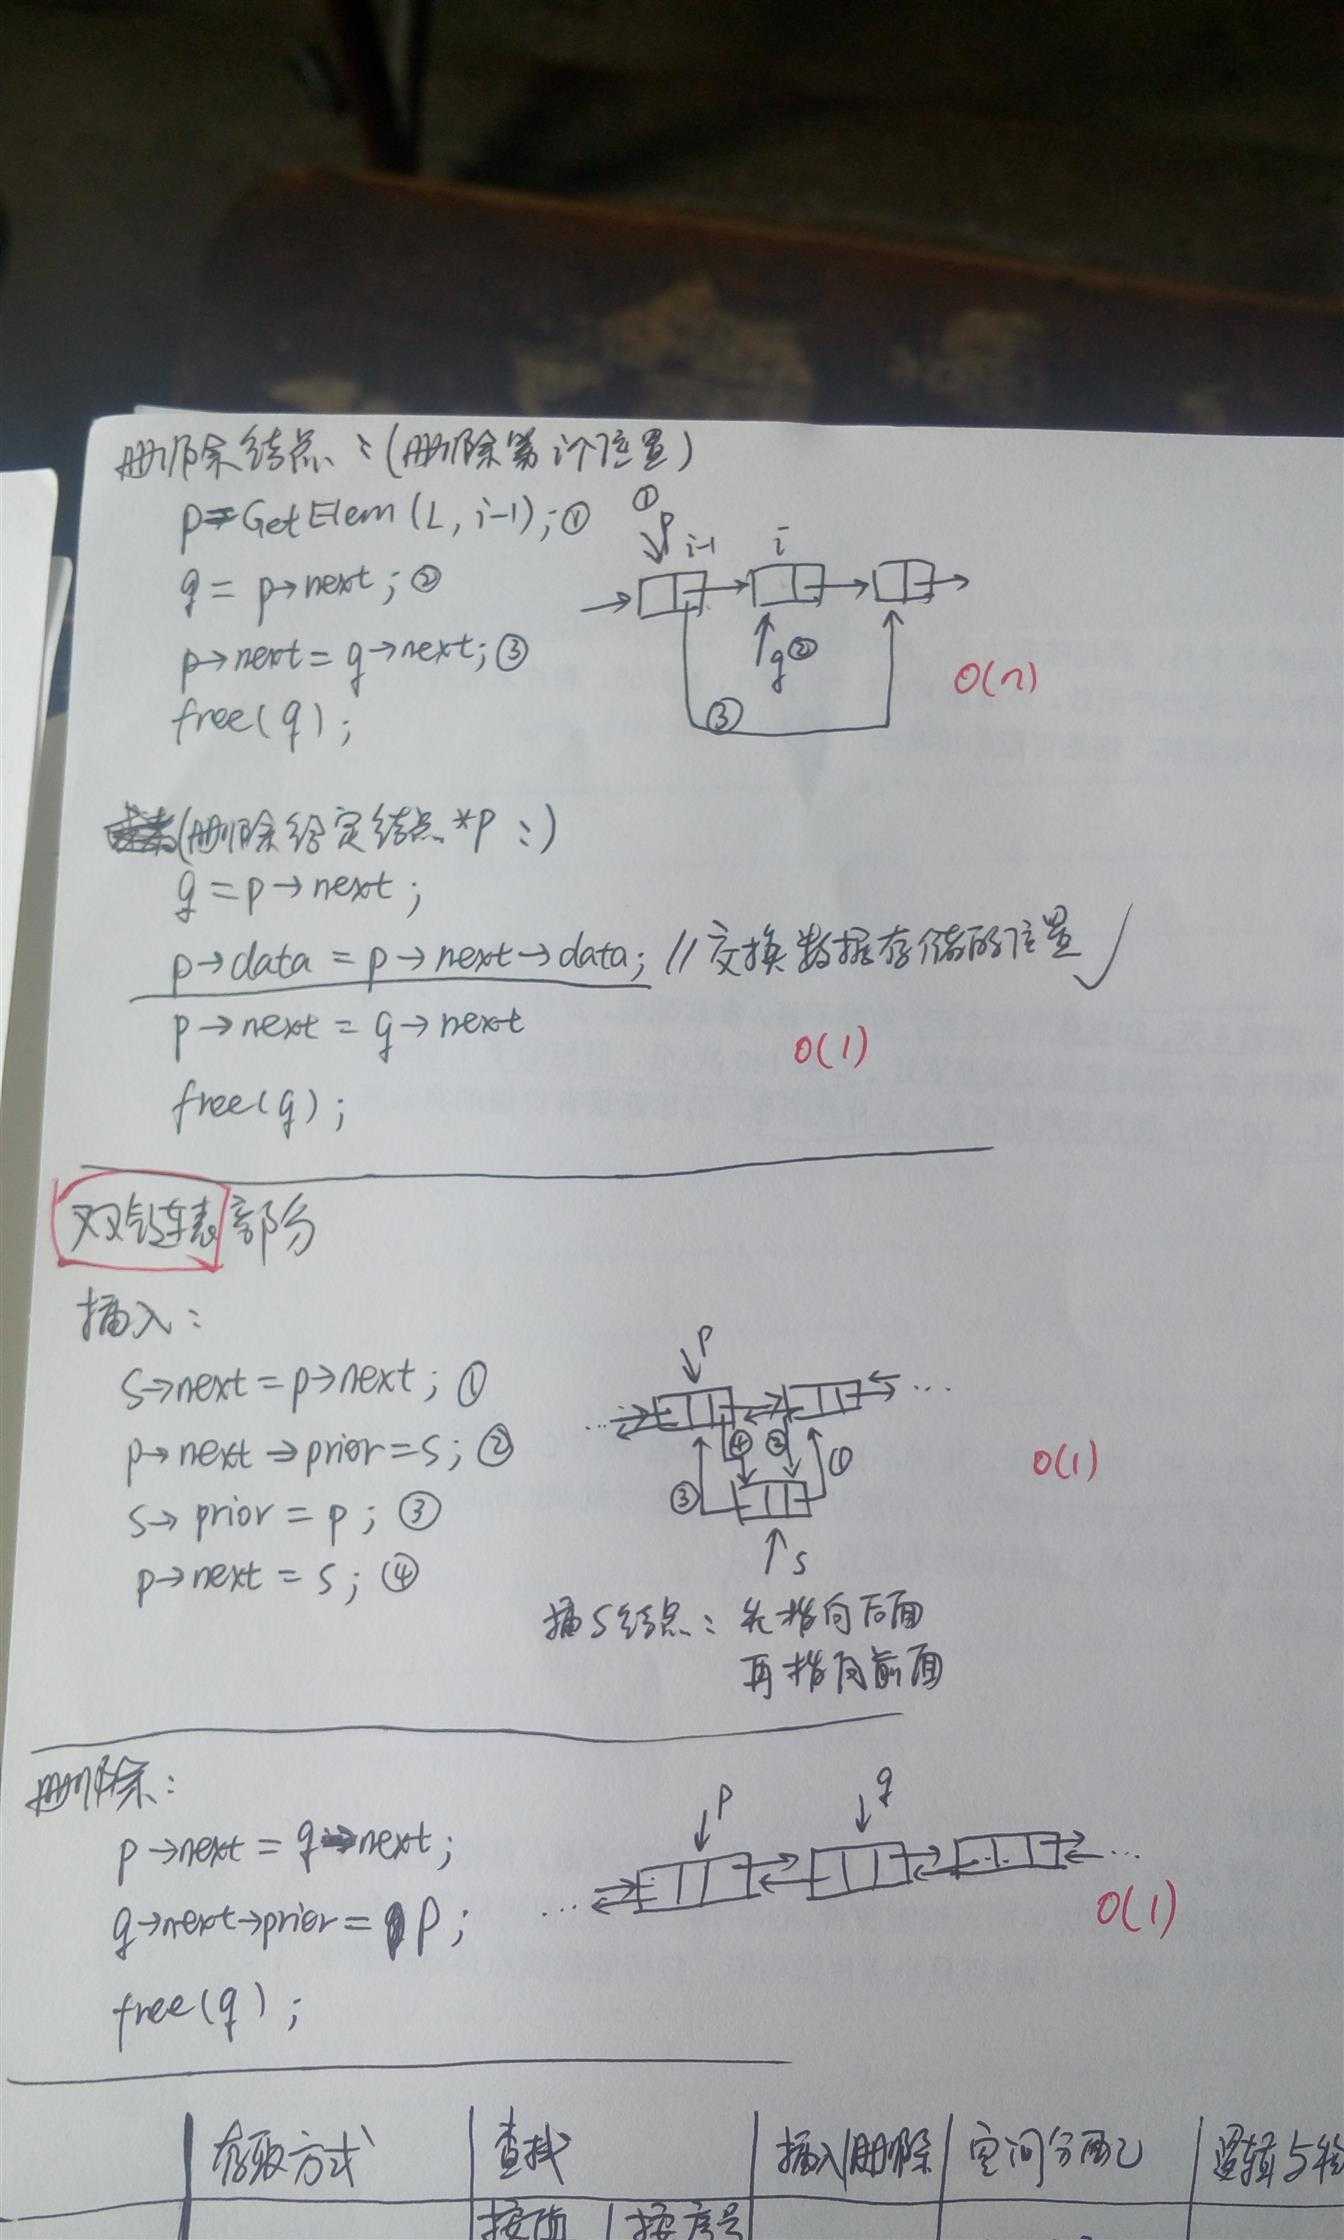 删除结点：(删除第i个位置)
p=GetElem(L,i-1);①
q=p→next;②
p→next=q→next;③
free(q);
① p i-1 i
q②
③
O(n)
(删除给定结点*P：)
q=p→next;
p→data=p→next→data; //交换数据存储的位置 ✓
p→next=q→next
O(1)
free(q);
双链表部分
插入：
s→next=p→next;①
p→next→prior=s;②
s→prior=p;③
p→next=s;④
P
...
④ ② ①
③
S
O(1)
插S结点：先指向后面
再指向前面
删除：
p→next=q→next;
q→next→prior=P;
free(q);
P q
... ...
O(1)
存取方式 查找 插入|删除 空间分配 逻辑与
按值 按序号